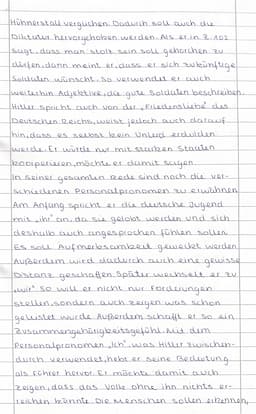 Hühnerstall verglichen. Dadurch soll auch die
Diktatur hervorgehoben werden. Als er in Z. 102
sagt, dass man stolz sein soll gehorchen zu
dürfen, dann meint er, dass er sich zukünftige
Soldaten wünscht. So verwendet er auch
weiterhin Adjektive, die gute Soldaten beschreiben.
Hitler spricht auch von der „Friedensliebe" des
Deutschen Reichs, weist jedoch auch darauf
hin, dass es selbst kein Unleid erdulden
werde. Er würde nur mit starken Staaten
kooperieren, möchte er damit sagen.
In seiner gesamten Rede sind noch die ver-
schiedenen Personalpronomen zu erwähnen.
Am Anfang spricht er die deutsche Jugend
mit „ihr" an, da sie gelobt werden und sich
deshalb auch angesprochen fühlen sollen.
Es soll Aufmerksamkeit geweckt werden.
Außerdem wird dadurch auch eine gewisse
Distanz geschaffen. Später wechselt er zu
„wir". So will er nicht nur Forderungen
stellen, sondern auch zeigen was schon
geleistet wurde. Außerdem schafft er so ein
Zusammengehörigkeitsgefühl. Mit dem
Personalpronomen „Ich", was Hitler zwischen-
durch verwendet, hebt er seine Bedeutung
als Führer hervor. Er möchte damit auch
zeigen, dass das Volk ohne ihn nichts er-
reichen könnte. Die Menschen sollen erkennen,